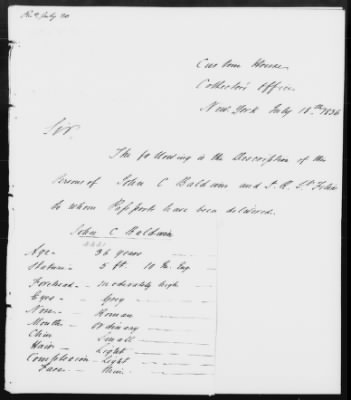 Recd July 20
Custom House
Collector's Office
New York July 18th 1836
Sir
The following is the Description of the
Persons of John C Baldwin and
to whom Passports have been delivered.
John C Baldwin
Age - 36 years
Stature - 5 ft 10 In. Eng.
Forehead - moderately high
Eyes - Grey
Nose - Roman
Mouth - Ordinary
Chin Small
Hair - Light
Complexion - Light
Face - thin